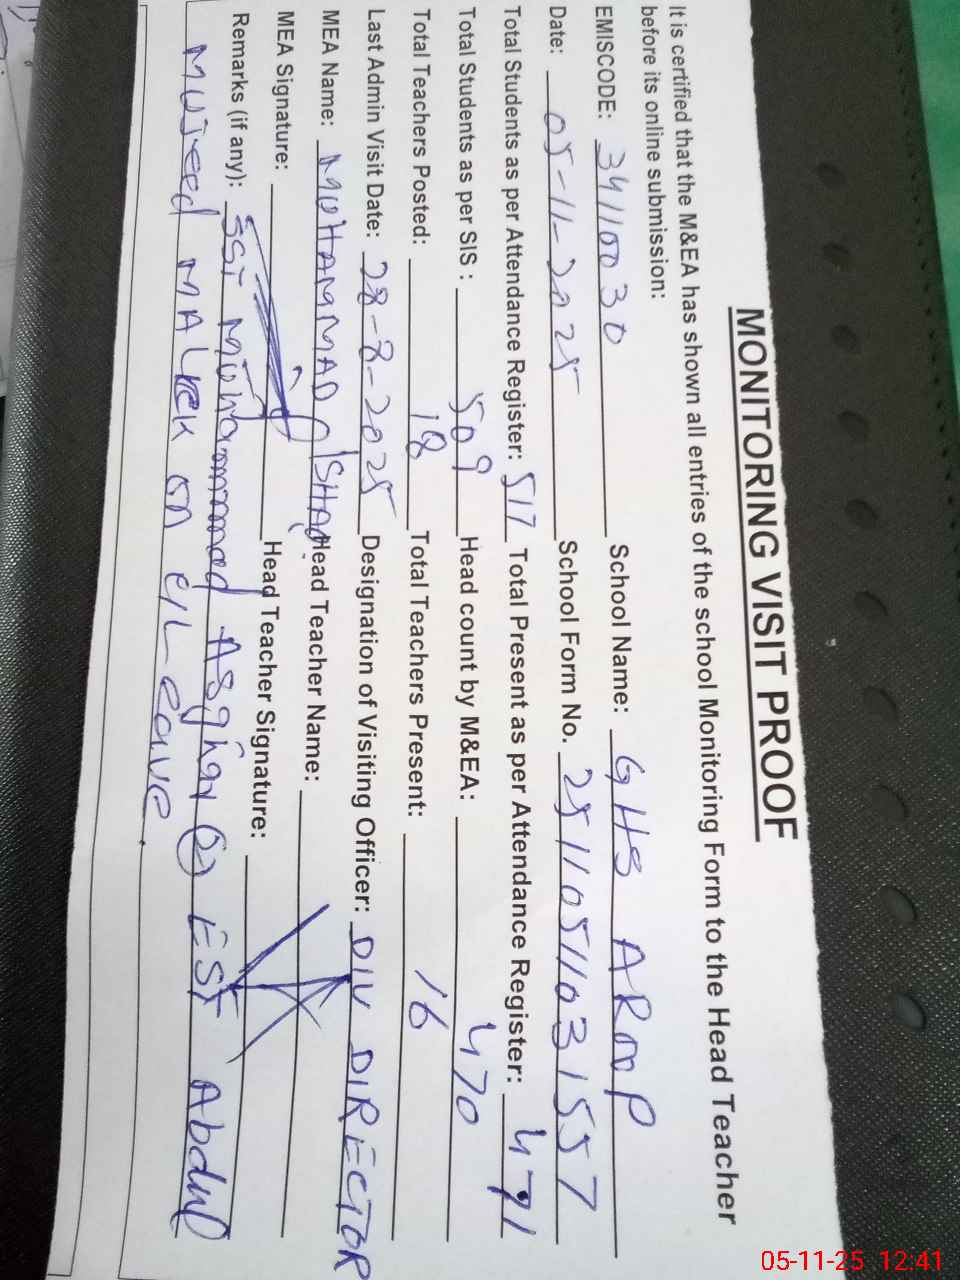 MONITORING VISIT PROOF
It is certified that the M&EA has shown all entries of the school Monitoring Form to the Head Teacher
before its online submission:
EMISCODE: 34110030 School Name: GHS AROOP
Date: 05-11-2025 School Form No. 2511051103157
Total Students as per Attendance Register: 517 Total Present as per Attendance Register: 471
Total Students as per SIS : 509 Head count by M&EA: 470
Total Teachers Posted: 18 Total Teachers Present: 16
Last Admin Visit Date: 28-8-2025 Designation of Visiting Officer: DIV DIRECTOR
MEA Name: MUHAMMAD ISHAQ Head Teacher Name:
MEA Signature: Head Teacher Signature:
Remarks (if any): SST Muhammad Asghar (2) EST Abdul
Mujeed MALICK on C/Leave.
05-11-25 12:41